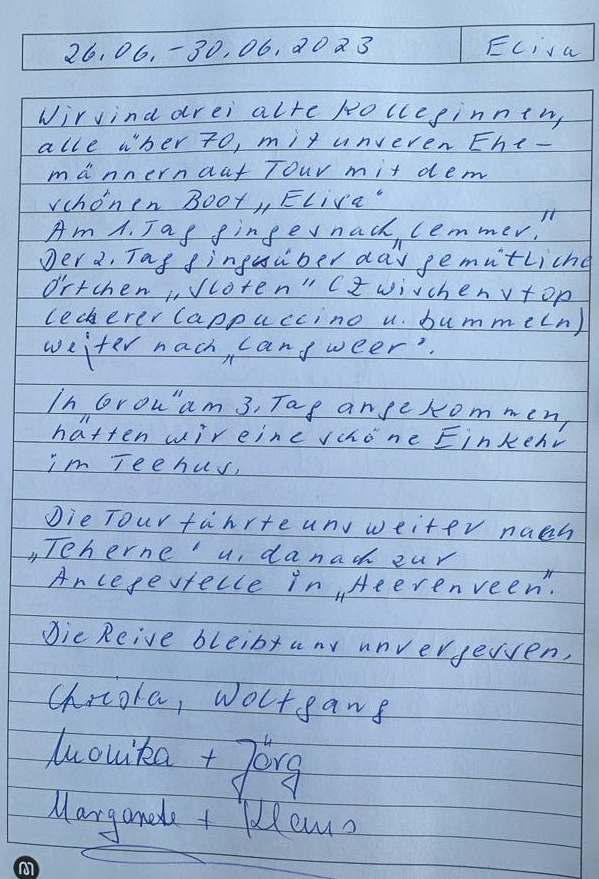 26.06.-30.06.2023 Elisa
Wir sind drei alte Kolleginnen,
alle über 70, mit unseren Ehe-
männern auf Tour mit dem
schönen Boot „Elisa"
Am 1. Tag ging es nach „Lemmer."
Der 2. Tag ging über das gemütliche
Örtchen „Sloten" (Zwischenstop
leckerer Cappuccino u. bummeln)
weiter nach „Langweer".
In „Grou" am 3. Tag angekommen,
hatten wir eine schöne Einkehr
im Teehus.
Die Tour führte uns weiter nach
„Teherne" u. danach zur
Anlegestelle in „Heerenveen".
Die Reise bleibt uns unvergessen.
Christa, Wolfgang
Monika + Jörg
Margarete + Klaus